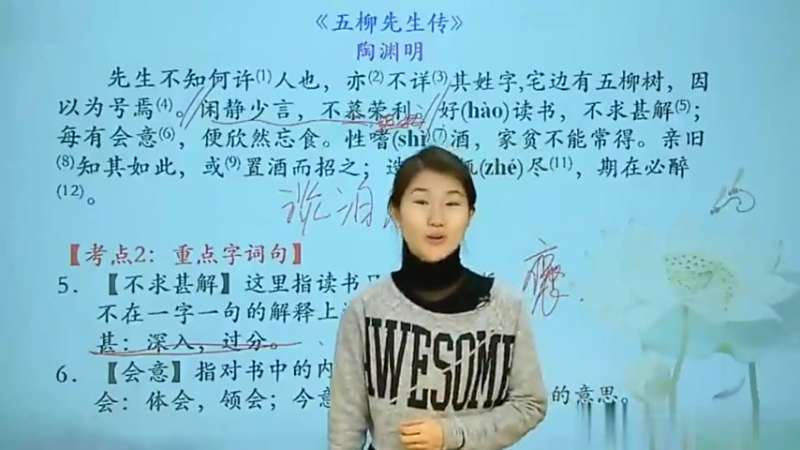 《五柳先生传》
陶渊明
先生不知何许(1)人也，亦(2)不详(3)其姓字,宅边有五柳树，因
以为号焉(4)。闲静少言，不慕荣利。好(hào)读书，不求甚解(5)；
每有会意(6)，便欣然忘食。性嗜(shì)(7)酒，家贫不能常得。亲旧
(8)知其如此，或(9)置酒而招之；造 (zhé)尽(11)，期在必醉
(12)。
【考点2：重点字词句】
5．【不求甚解】这里指读书
不在一字一句的解释上
甚：深入，过分。
6．【会意】指对书中的内
会：体会，领会；今意 的意思。
AWESOME